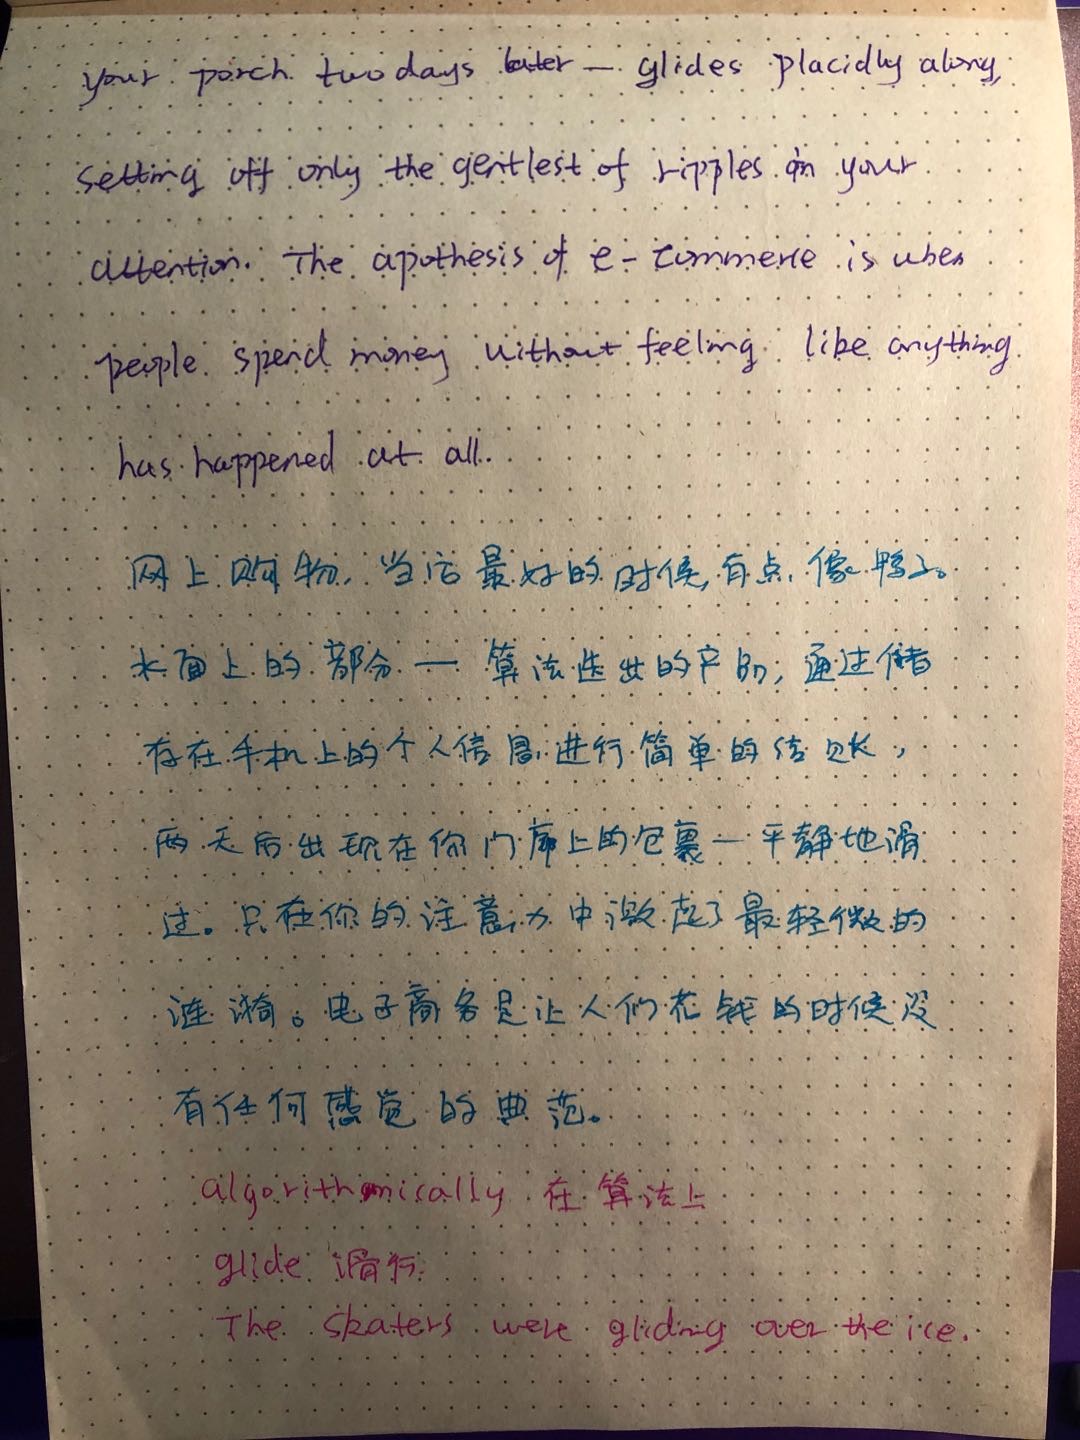 your porch two days later — glides placidly along,
setting off only the gentlest of ripples in your
attention. The apothesis of e-commerce is when
people spend money without feeling like anything
has happened at all.
网上购物,当店最好的时候,有点像鸭子。
水面上的部分一算法选出的产品,通过储
存在手机上的个人信息,进行简单的结账,
两天后出现在你门廊上的包裹一平静地滑
过。只在你的注意力中激起了最轻微的
涟漪。电子商务是让人们花钱的时候没
有任何感觉的典范。
algorithmically 在算法上
glide 滑行
The skaters were gliding over the ice.